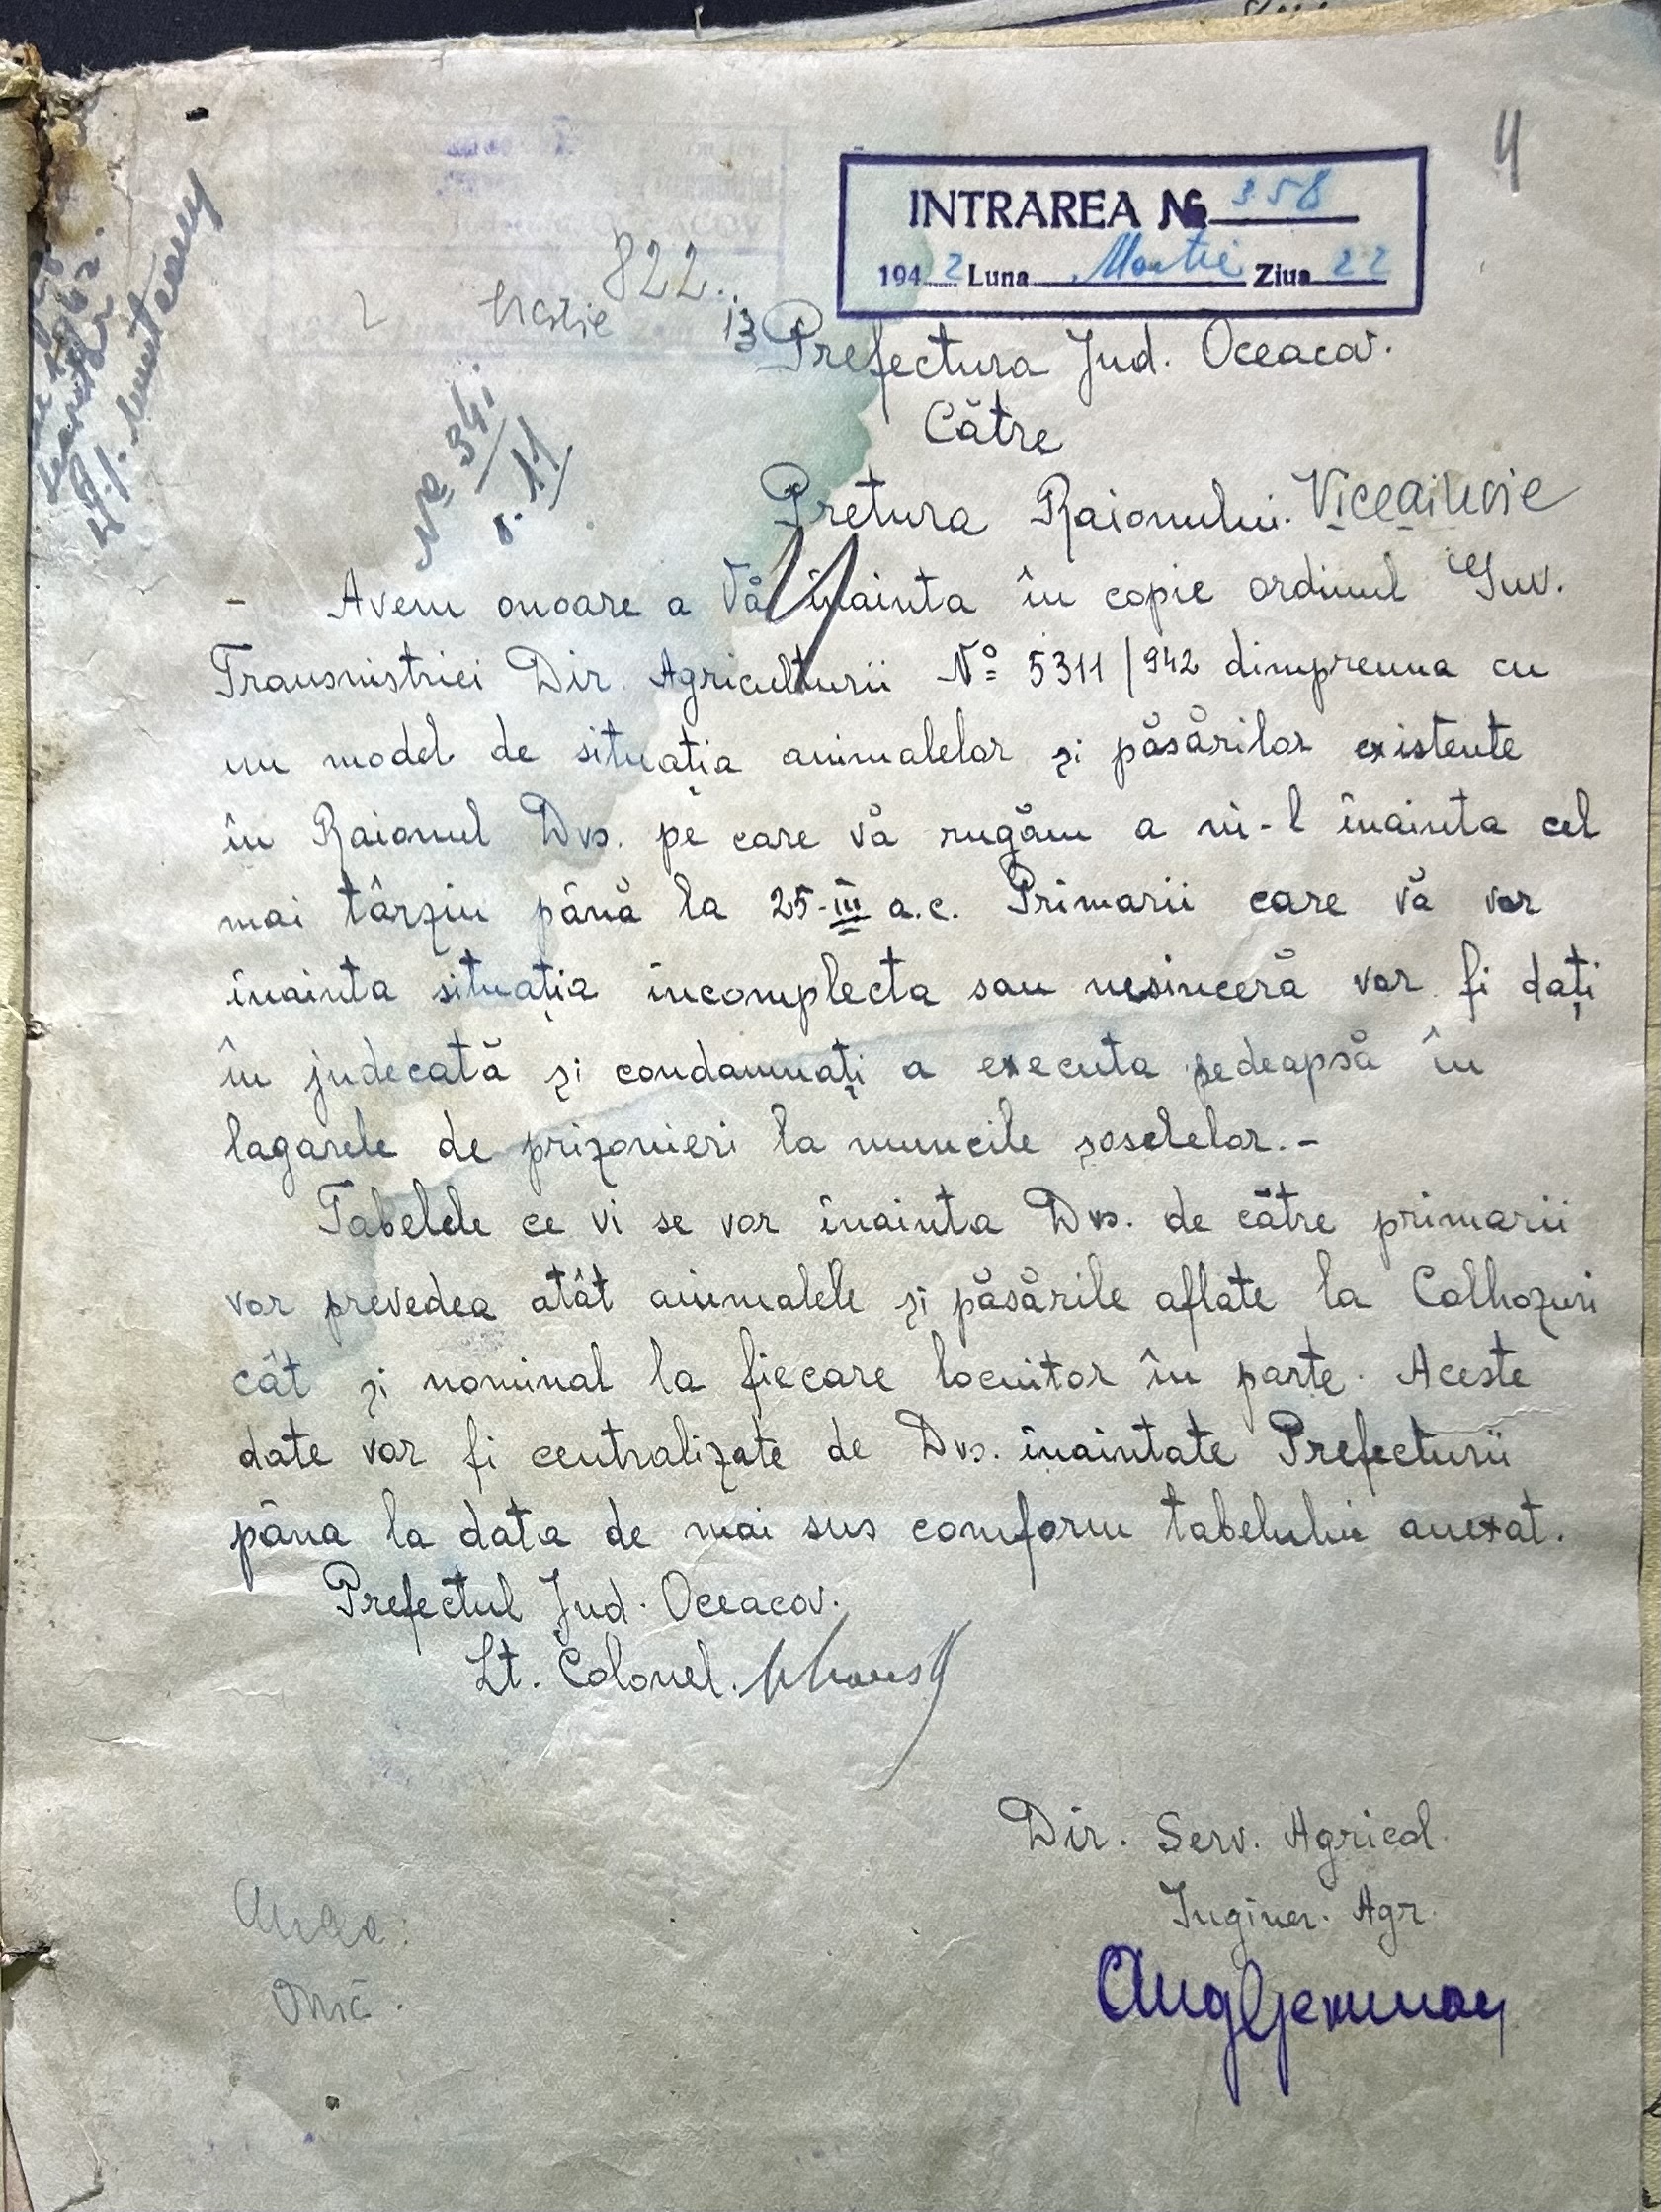 4
INTRAREA № 358
1942 Luna Martie Ziua 22
822.
2 Martie 13
Prefectura Jud. Oceacov.
Către
Pretura Raionului.
№ 341
Avem onoare a Vă înainta în copie ordinul Guv.
Transnistriei Dir. Agriculturii No 5311/942 dimpreuna cu
un model de situația animalelor și păsărilor existente
în Raionul Dvs. pe care vă rugăm a ni-l înainta cel
mai târziu până la 25-III a.c. Primarii care vă vor
înainta situația incomplecta sau nesinceră vor fi dați
în judecată și condamnați a executa pedeapsă în
lagarele de prizonieri la muncile șoselelor.-
Tabelele ce vi se vor înainta Dvs. de către primarii
vor prevedea atât animalele și păsările aflate la Colhozuri
cât și nominal la fiecare locuitor în parte. Aceste
date vor fi centralizate de Dvs. înaintate Prefecturii
pâna la data de mai sus comform tabelului anexat.
Prefectul Jud. Oceacov.
Lt. Colonel.
Dir. Serv. Agricol.
Inginer. Agr.